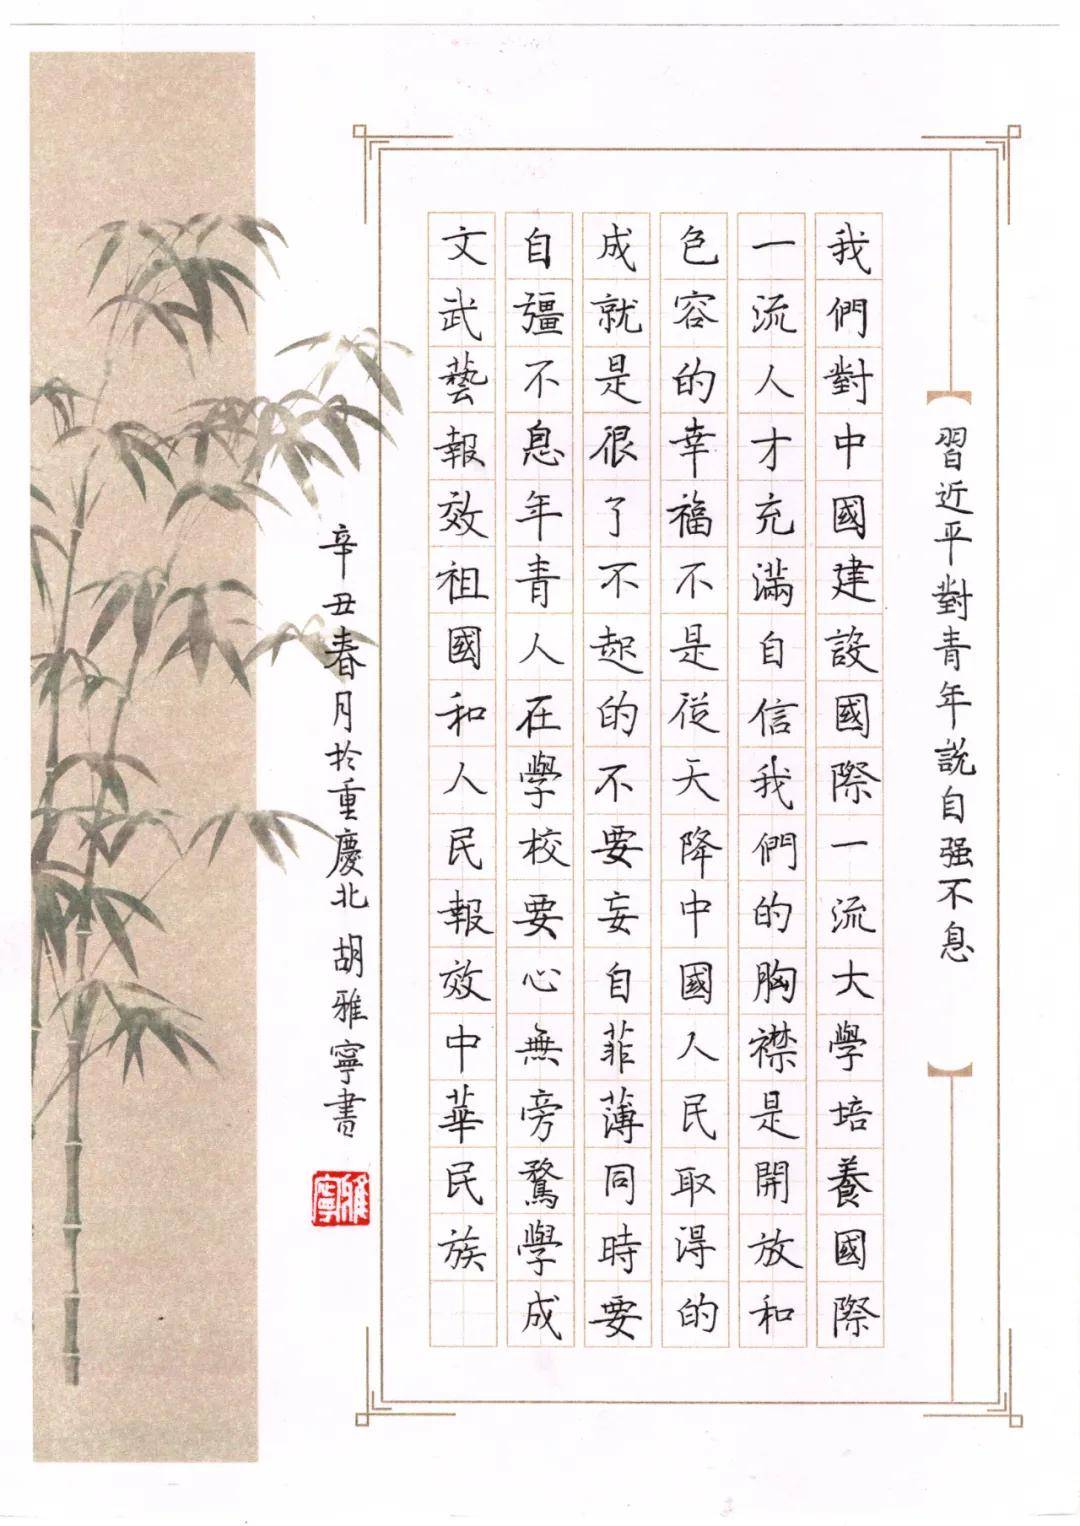 習近平對青年說自强不息
我們對中國建設國際一流大學培養國際
一流人才充滿自信我們的胸襟是開放和
色容的幸福不是從天降中國人民取得的
成就是很了不起的不要妄自菲薄同時要
自彊不息年青人在學校要心無旁騖學成
文武藝報效祖國和人民報效中華民族
辛丑春月於重慶北 胡雅寧書
雅寧